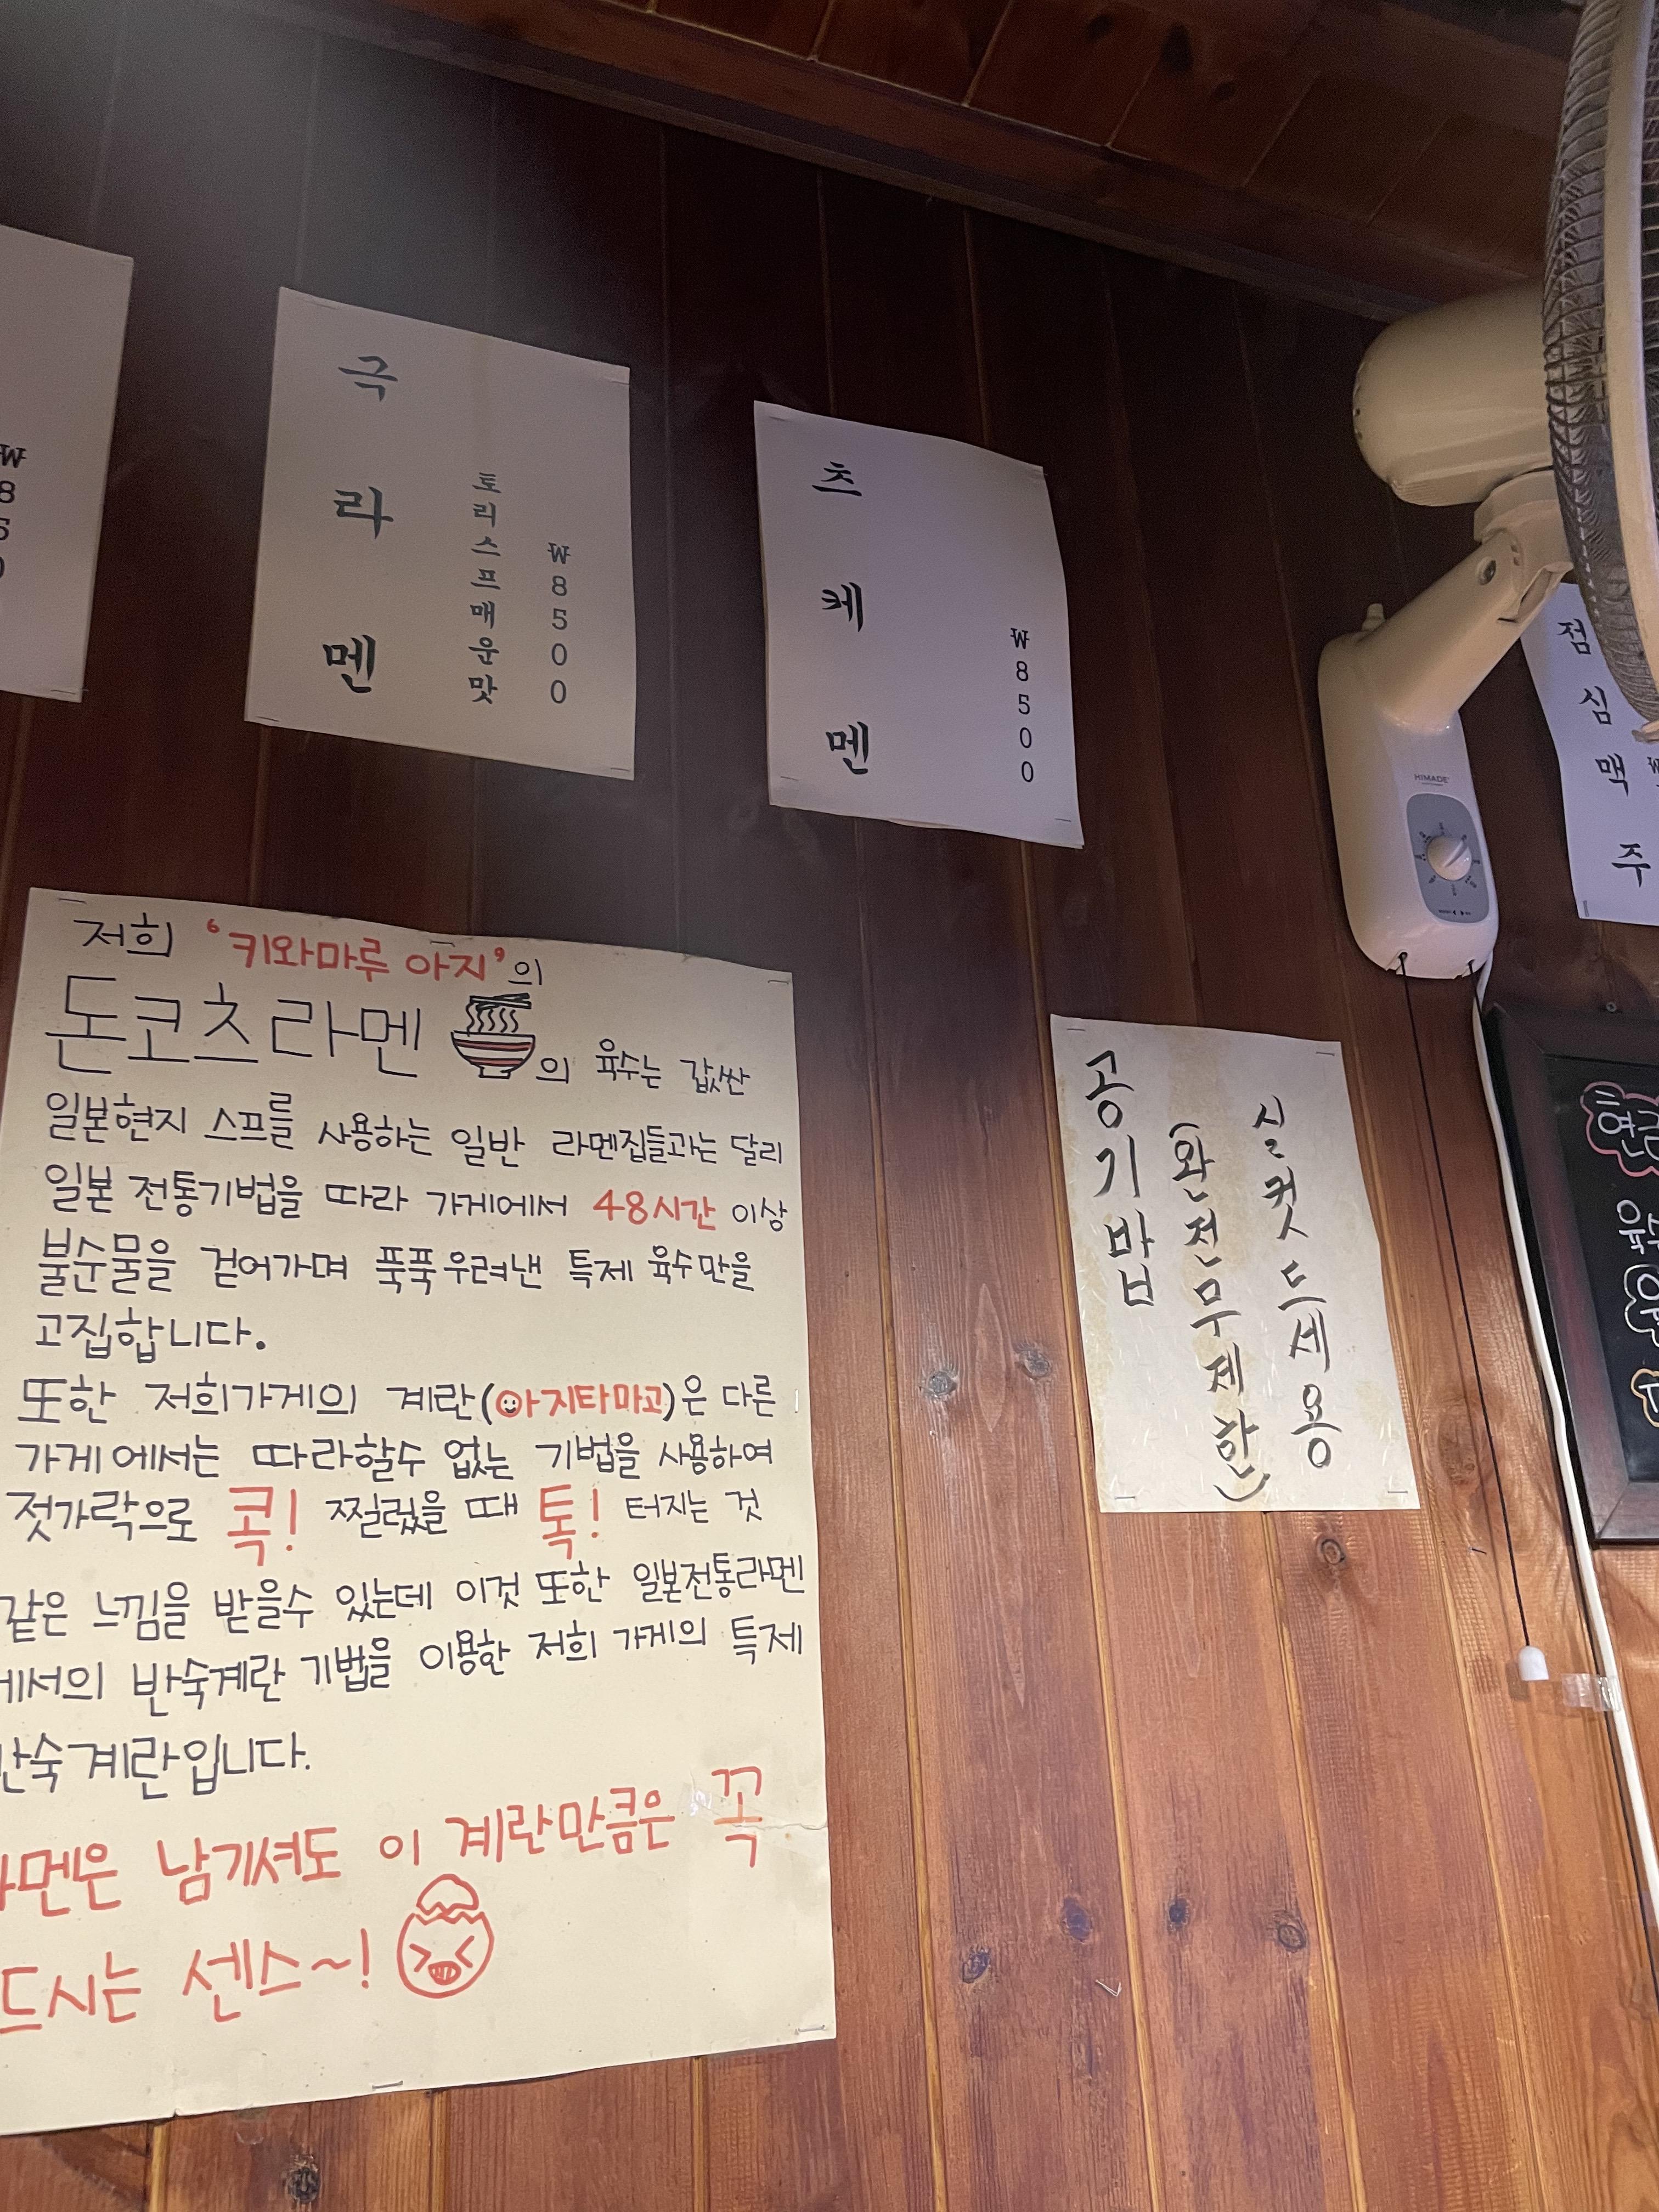 ₩8500
극라멘
토리스프매운맛
₩8500
츠케멘
₩8500
HIMADE
점심맥주
저희 '키와마루 아지'의
돈코츠라멘의 육수는 값싼
일본현지 스프를 사용하는 일반 라멘집들과는 달리
일본 전통기법을 따라 가게에서 48시간 이상
불순물을 걷어가며 푹푹우려낸 특제 육수만을
고집합니다.
또한 저희가게의 계란(아지타마고)은 다른
가게에서는 따라할수 없는 기법을 사용하여
젓가락으로 콕! 찔렀을 때 톡! 터지는 것
같은 느낌을 받을수 있는데 이것 또한 일본전통라멘
에서의 반숙계란 기법을 이용한 저희 가게의 특제
반숙계란입니다.
라멘은 남기셔도 이 계란만큼은 꼭
드시는 센스~!
공기밥
(완전무제한)
실컷드세용
육수